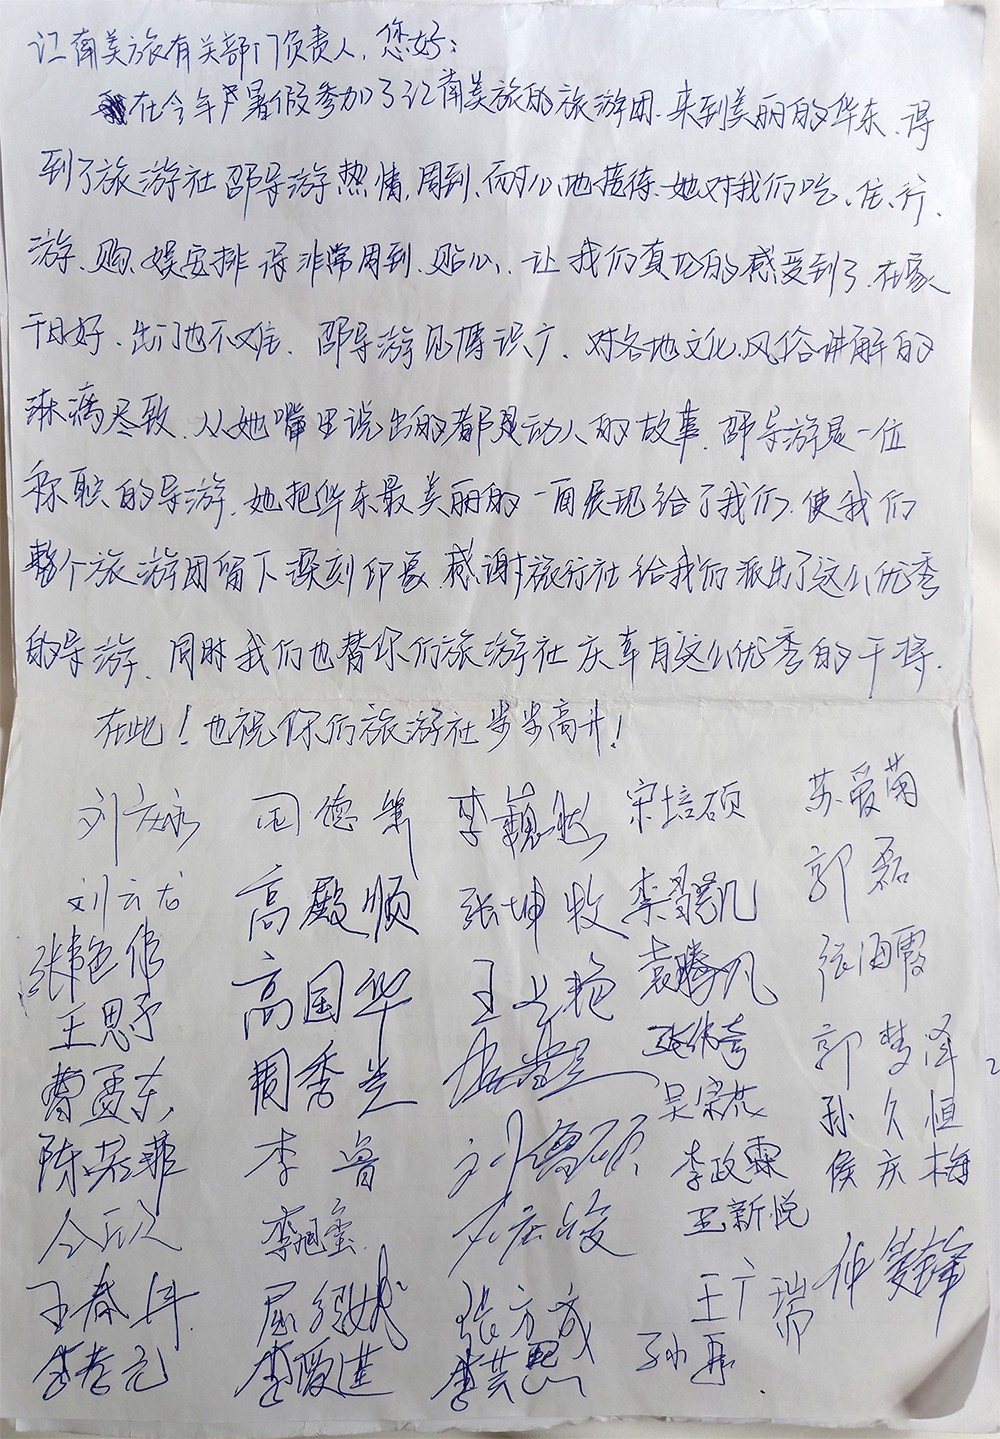 江南美旅有关部门负责人,您好:
在今年暑假参加了江南美旅的旅游团.来到美丽的华东.得
到了旅游社邵导游热情,周到、耐心地接待.她对我们吃、住、行、
游、购、娱安排得非常周到、贴心、让我们真切的感受到了.在家
千日好、出门也不难.邵导游见博识广、对各地文化、风俗讲解的
淋漓尽致.从她嘴里说出的都是动人的故事.邵导游是一位
称职的导游.她把华东最美丽的一面展现给了我们.使我们
整个旅游团留下深刻印象.感谢旅行社给我们派出了这么优秀
的导游、同时我们也替你们旅游社庆幸有这么优秀的干将.
在此!也祝你们旅游社步步高升!
刘庆永 李 宋培硕 苏爱菊
刘云龙 高殿顺 张坤牧 郭磊
高国华 王 袁腾凡 张海霞
王思予 周秀兰 郭梦泽
曹孟东 刘鲁硕 吴宗 孙久恒
陈若菲 李鲁 李政霖 侯庆梅
王新悦
王春年 张方成 王广瑞 仲
李孝元 李爱进 李共熙 孙